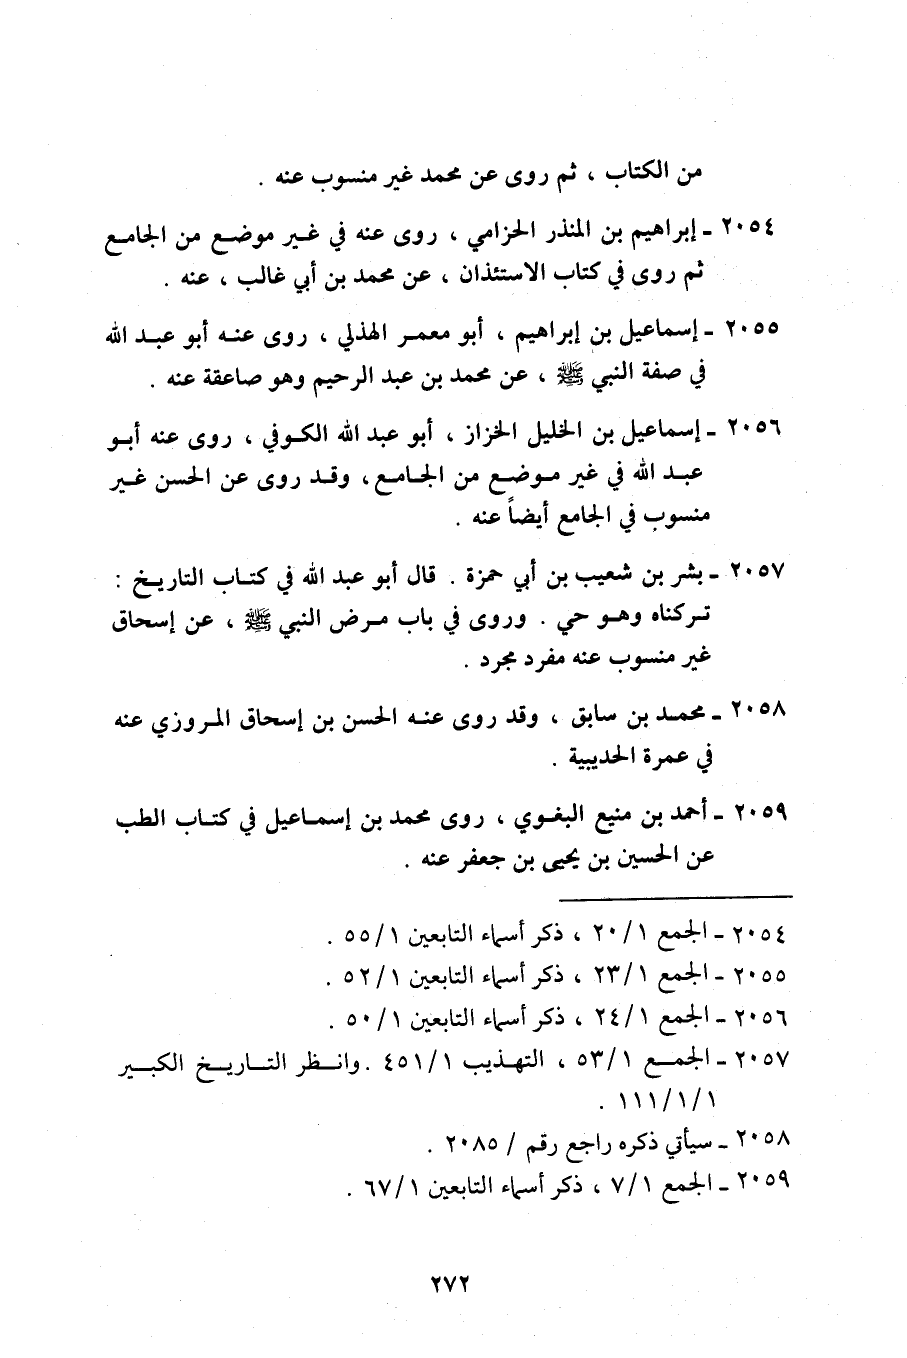 من الكتاب ، ثم روى عن محمد غير منسوب عنه .
٢٠٥٤ ـ إبراهيم بن المنذر الحزامي ، روى عنه في غير موضع من الجامع
ثم روى في كتاب الاستئذان ، عن محمد بن أبي غالب ، عنه .
٢٠٥٥ ـ إسماعيل بن إبراهيم ، أبو معمر الهذلي ، روى عنه أبو عبد الله
في صفة النبي ﷺ ، عن محمد بن عبد الرحيم وهو صاعقة عنه .
٢٠٥٦ ـ إسماعيل بن الخليل الخزاز ، أبو عبد الله الكوفي ، روى عنه أبو
عبد الله في غير موضع من الجامع ، وقد روى عن الحسن غير
منسوب في الجامع أيضاً عنه .
٢٠٥٧ ـ بشر بن شعيب بن أبي حمزة . قال أبو عبد الله في كتاب التاريخ :
تركناه وهو حي . وروى في باب مرض النبي ﷺ ، عن إسحاق
غير منسوب عنه مفرد مجرد .
٢٠٥٨ ـ محمد بن سابق ، وقد روى عنه الحسن بن إسحاق المروزي عنه
في عمرة الحديبية .
٢٠٥٩ ـ أحمد بن منيع البغوي ، روى محمد بن إسماعيل في كتاب الطب
عن الحسين بن يحيى بن جعفر عنه .
٢٠٥٤ ـ الجمع ٢٠/١ ، ذكر أسماء التابعين ٥٥/١ .
٢٠٥٥ ـ الجمع ٢٣/١ ، ذكر أسماء التابعين ٥٢/١ .
٢٠٥٦ ـ الجمع ٢٤/١ ، ذكر أسماء التابعين ٥٠/١ .
٢٠٥٧ ـ الجمع ٥٣/١ ، التهذيب ٤٥١/١ . وانظر التاريخ الكبير
١١١/١/١ .
٢٠٥٨ ـ سيأتي ذكره راجع رقم / ٢٠٨٥ .
٢٠٥٩ ـ الجمع ٧/١ ، ذكر أسماء التابعين ٦٧/١ .
٢٧٢